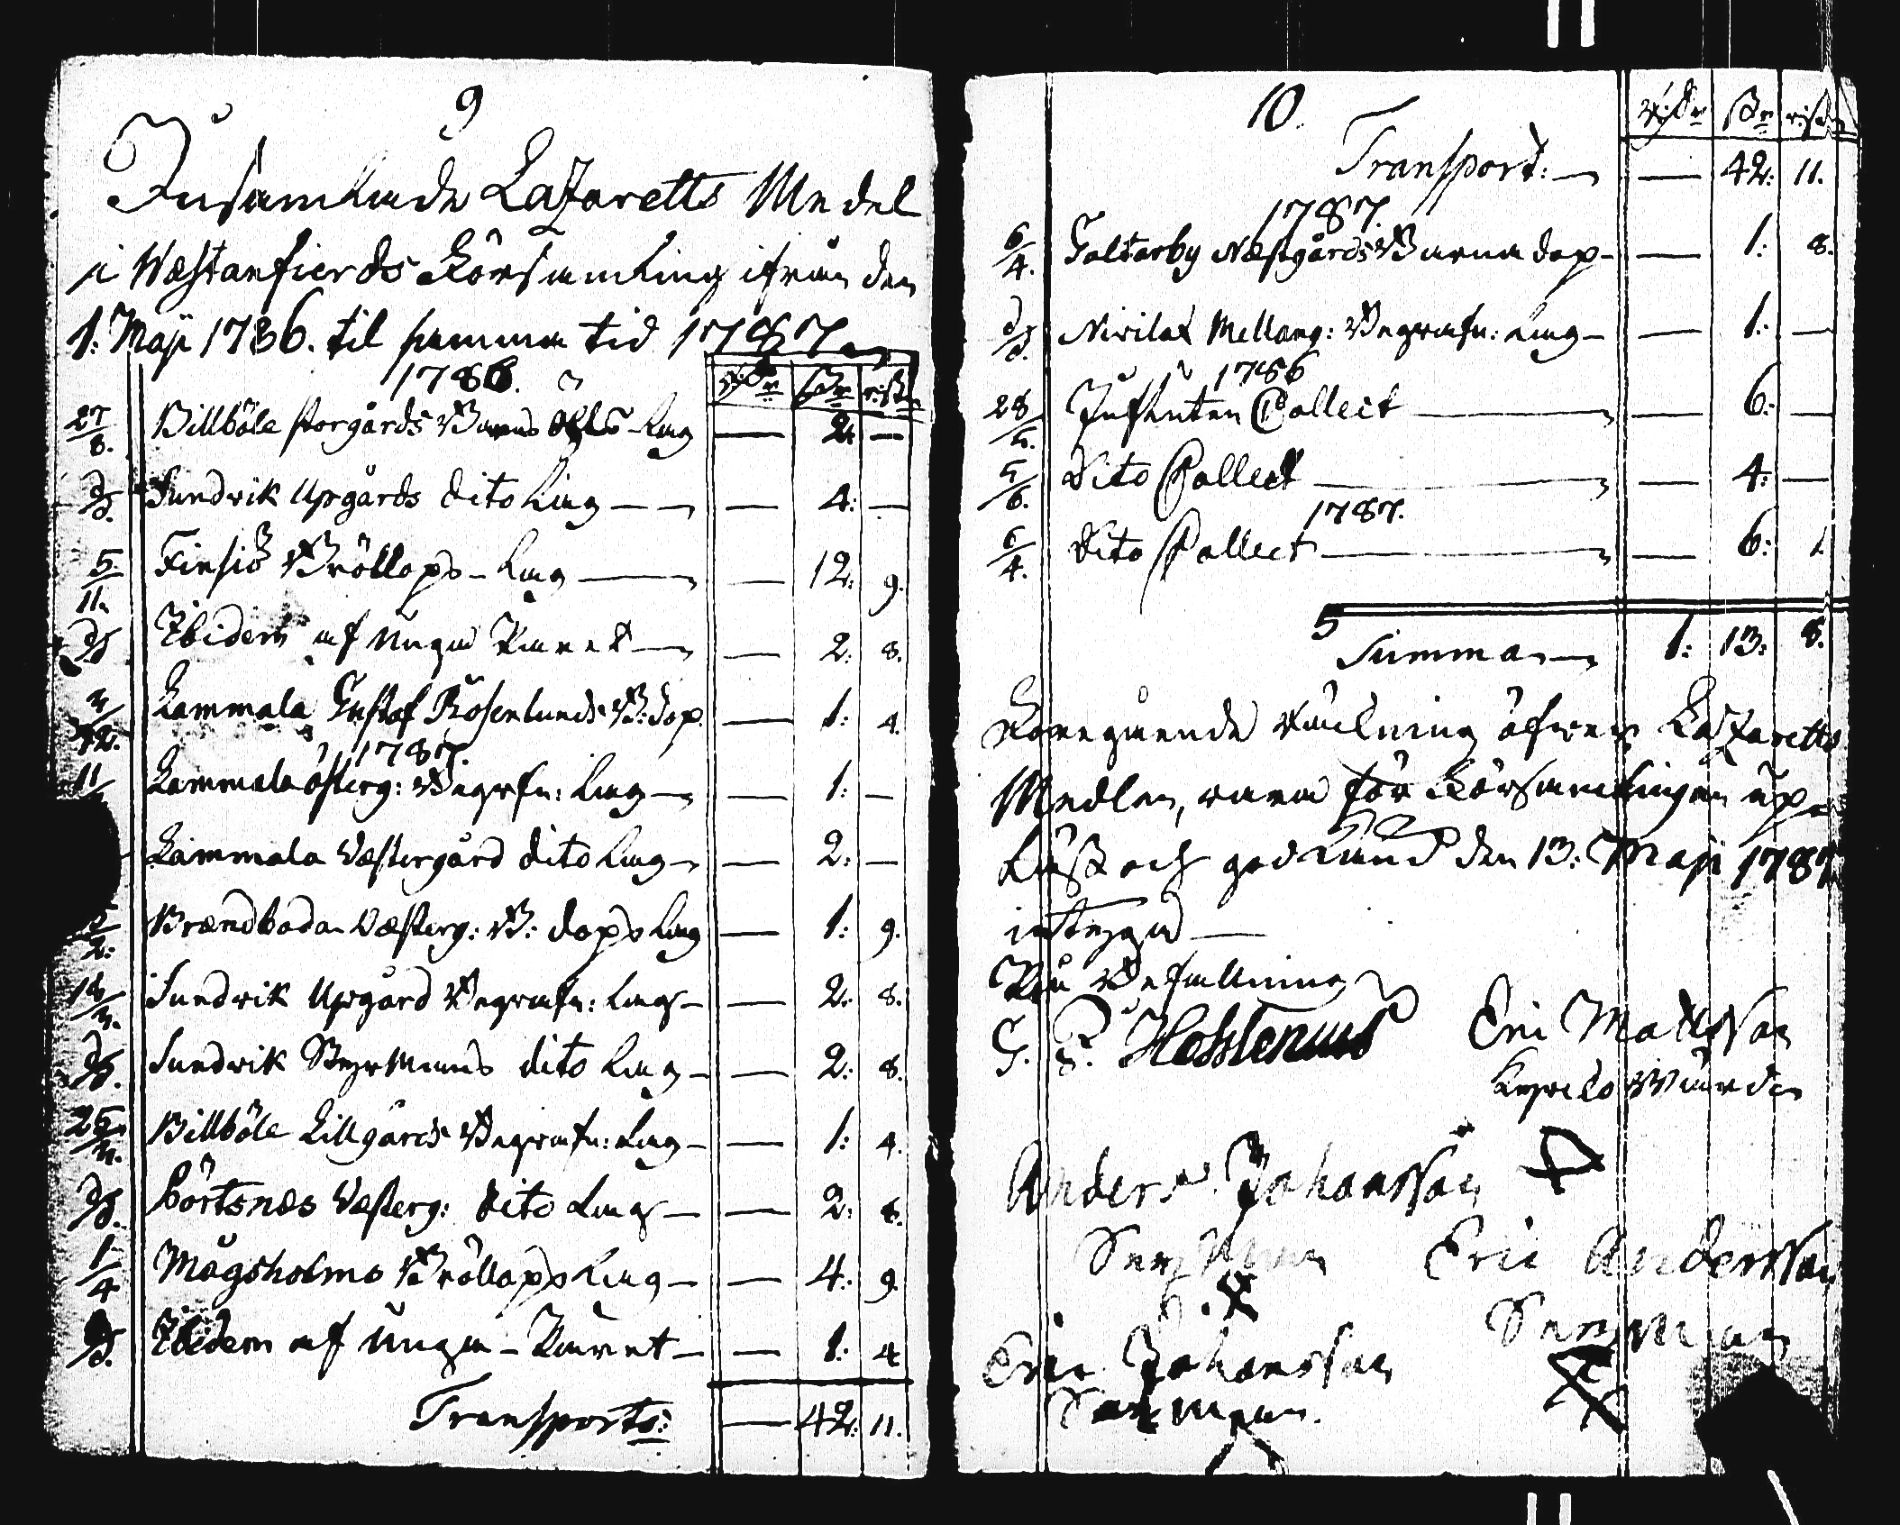 9
Insamlade Lazaretts Medel
i Wæstanfierds Församling ifrån den
1: Maji 1786. til samma tid 1787
1786.
R:dr ßr r:st
27/8. Billböle storgårds Barns lag — 2: —
do Sundvik Upgårds dito lag — 4: —
5/11. Finsiö Bröllops-lag — 12: 9.
do Ibidem af unga Paret — 2: 8.
Lammala Gustaf Rosenlunds B: dop — 1: 4.
1787.
11 Lammala österg: Begrafn: lag — 1: —
Lammala Wæstergård dito lag — 2: —
2: Brændboda Wæsterg: B: dops lag — 1: 9.
18 Sundvik Upgård Begrafn: lag — 2: 8.
do Sundvik Styrmans dito lag — 2: 8.
25 Billböle Lillgårds Begrafn: lag — 1: 4.
do Börtsnæs Wæsterg: dito lag — 2: 8.
1/4 Mågsholms Bröllops lag — 4: 9.
do Ibidem af unga Paret — 1: 4
Transport: — 42: 11.
10.
R:dr ßr r:st
Transport: — 42: 11.
1787.
6/4. Galtarby Næstgårds Barna dop — 1: 8.
do Nivilax Mellang: Begrafn: lag — 1: —
1786
28/5. Influten Collect — 6: —
5/6. Dito Collect — 4: —
1787.
6/4. Dito Collect — 6: 1
Summa 1: 13: 8.
Föregående räkning öfwer Lazaretts
Medlen, vara för Församlingen up-
läst och godkänd den 13: Maji 1787
intygar
På Befallning
G. Hosslenius Eric Matsson
Kyrcko Wärde
Anders Johansson
Sexman Eric Andersson
Sexman
Eric Johansson
Sexman.